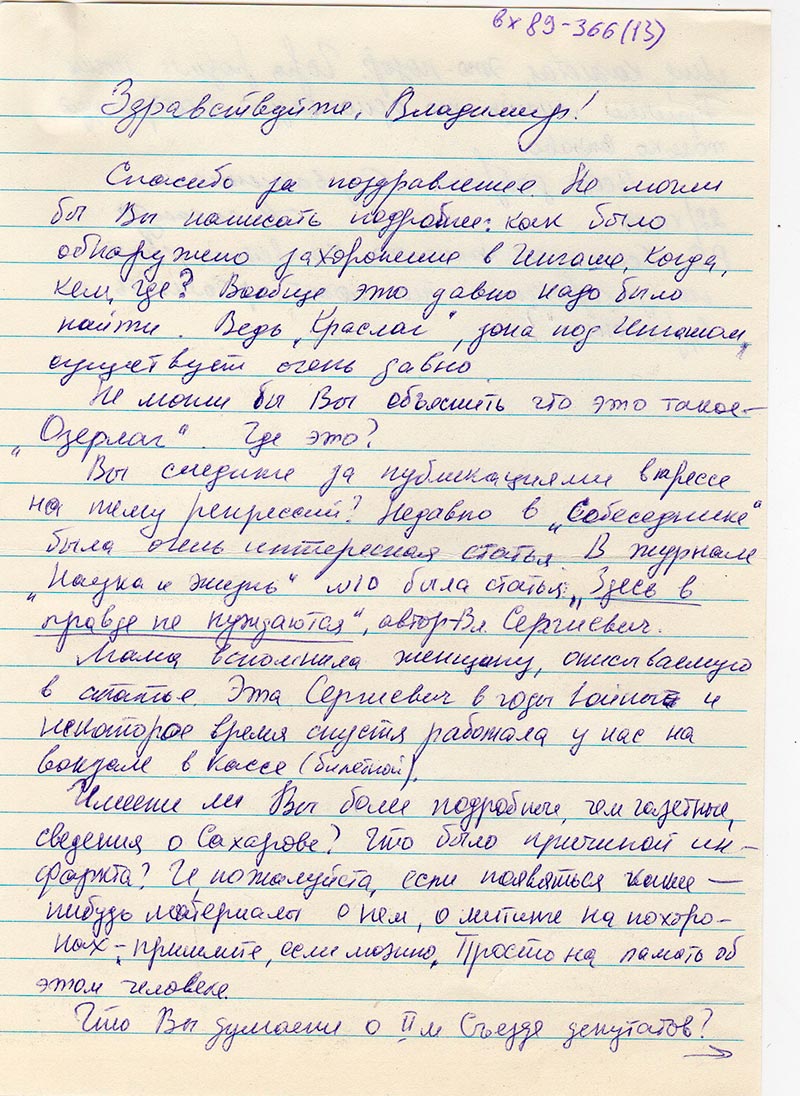 вх 89-366(13)
Здравствуйте, Владимир!
Спасибо за поздравление Не могли
бы Вы написать подробнее: как было
обнаружено захоронение в Ингаше, когда,
кем, где? Вообще это давно надо было
найти. Ведь "Краслаг", зона под Ингашом,
существует очень давно
Не могли бы Вы объяснить что это такое-
"Озерлаг". Где это?
Вы следите за публикациями в прессе
на тему репрессий? Недавно в "Собеседнике"
была очень интересная статья. В журнале
"Наука и жизнь" №10 была статья: "Здесь в
правде не нуждаются", автор-Вл. Сергиевич.
Мама вспомнила женщину, описываемую
в статье. Эта Сергиевич в годы войны и
некоторое время спустя работала у нас на
вокзале в кассе (билетной).
Имеете ли Вы более подробные, чем газетные,
сведения о Сахарове? Что было причиной ин-
фаркта? И, пожалуйста, если появяться какие-
нибудь материалы о нем, о митинге на похоро-
нах - пришлите, если можно. Просто на память об
этом человеке.
Что Вы думаете о IIм Съезде депутатов?
→